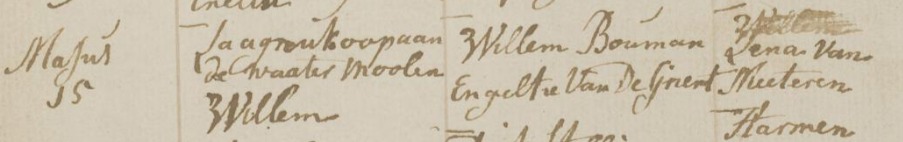 Majus
15
Jaagroukoopaan
de waater Moolen
Willem
Willem Bouman
Engeltie Van De Grient
Lena Van
Meeteren
Harmen